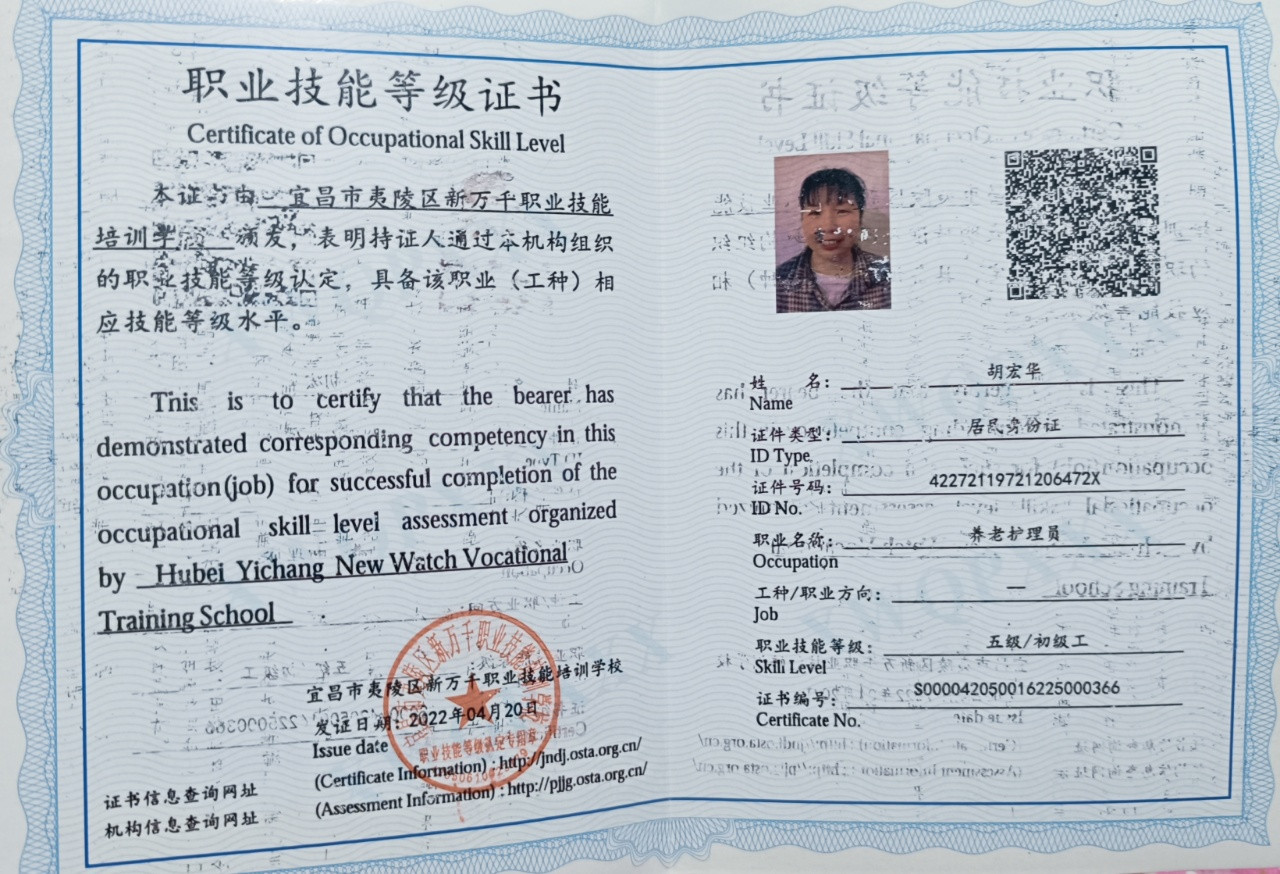 职业技能等级证书
Certificate of Occupational Skill Level
本证书由 宜昌市夷陵区新万千职业技能
培训学 颁发，表明持证人通过本机构组织
的职业技能等级认定，具备该职业（工种）相
应技能等级水平。
This is to certify that the bearer has
demonstrated corresponding competency in this
occupation(job) for successful completion of the
occupational skill level assessment organized
by Hubei Yichang New Watch Vocational
Training School
宜昌市夷陵区新万千职业技能培训学校
发证日期：2022年04月20日
Issue date
证书信息查询网址 (Certificate Information) : http://jndj.osta.org.cn/
机构信息查询网址 (Assessment Information) : http://pjjg.osta.org.cn/
职业技能等级认定专用章
姓 名： 胡宏华
Name
证件类型： 居民身份证
ID Type
证件号码： 42272119721206472X
ID No.
职业名称： 养老护理员
Occupation
工种/职业方向： —
Job
职业技能等级： 五级/初级工
Skill Level
证书编号： S000042050016225000366
Certificate No.